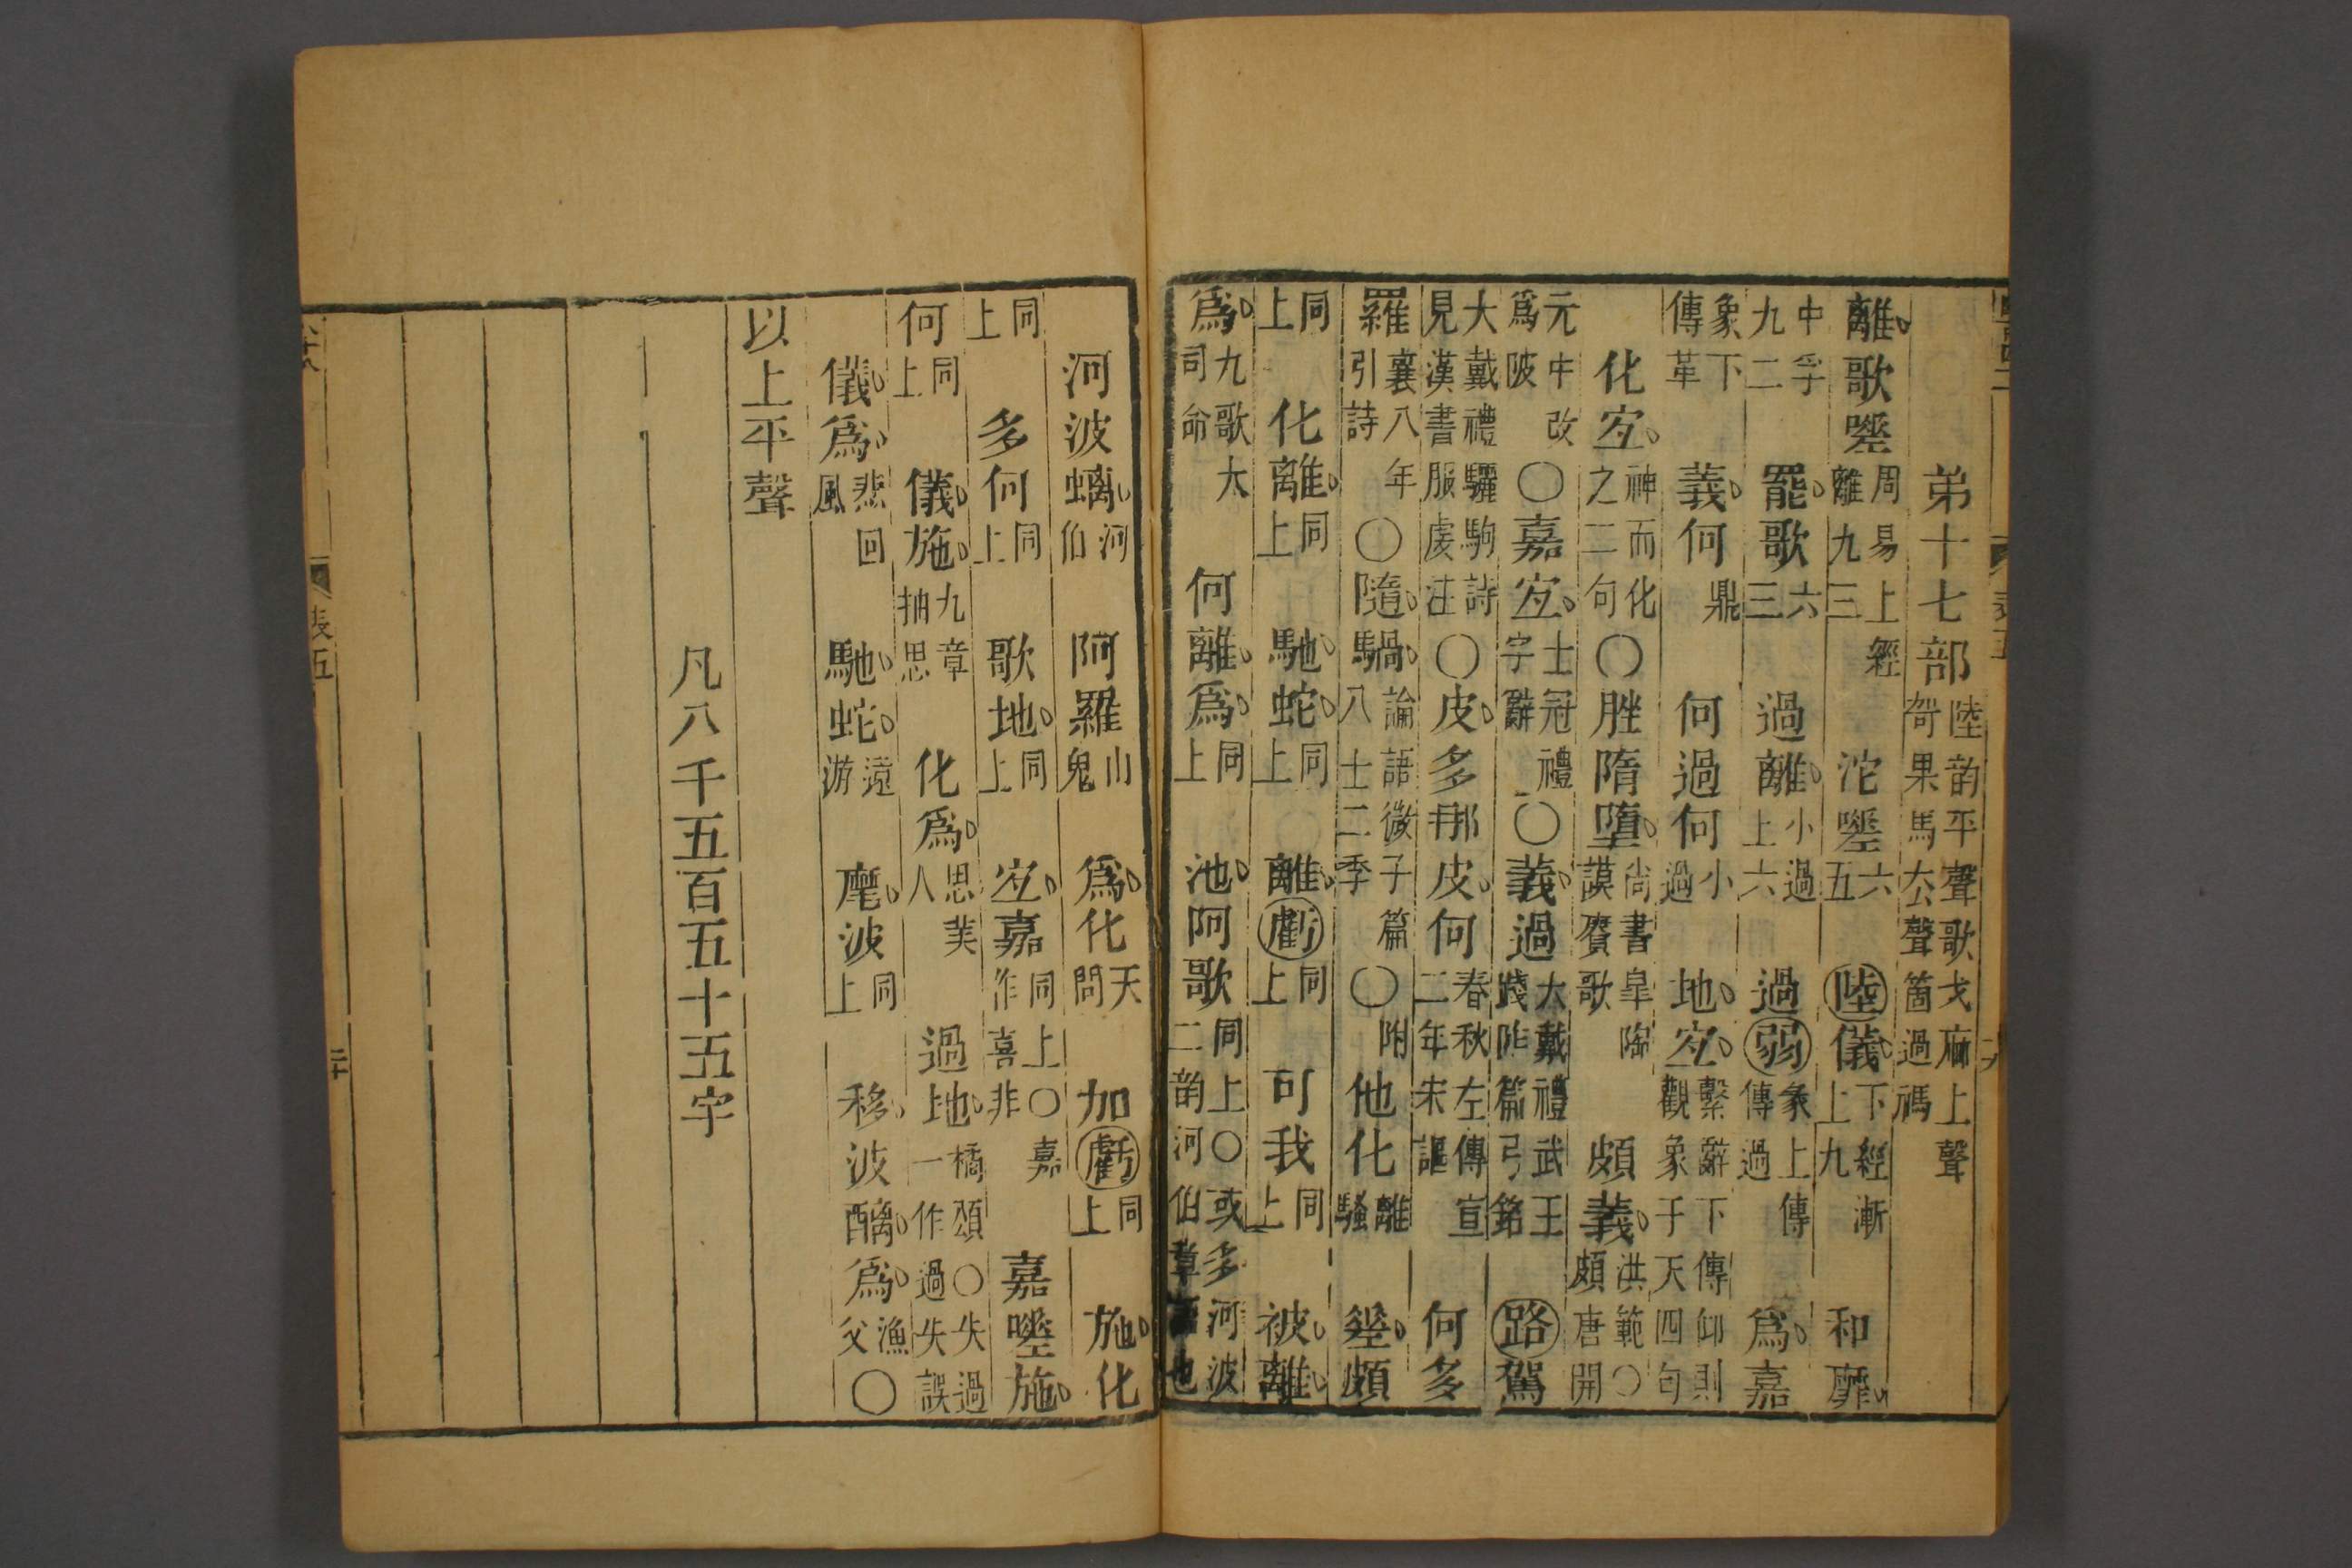 弟十七部陸韵平聲歌戈麻上聲哿果馬厺聲箇過禡
離歌𡄸周易上經離九三 沱𡄸六五 陸儀下經漸上九 和靡
中孚九二 罷歌六三 過離小過上六 過弱象上傳過傳 爲嘉
象下傳革 義何鼎 何過何小過 地宐繫辭下傳仰則觀象于天四句
化宐神而化之二句〇脞隋墮尚書皋陶謨賡歌 頗義洪範〇頗唐開
元中改爲陂〇嘉宐士冠禮字辭〇義過大戴禮武王踐阼篇弓銘 路駕
大戴禮驪駒詩見漢書服虔注〇皮多𨙻皮何春秋左傳宣二年宋謳 何多
羅襄八年引詩〇隨騧論語微子篇八士二季〇附 他化離騷 𠂹頗
同上 化離同上 馳蛇同上 離虧同上 可我同上 被離
爲九歌大司命 何離爲同上 池阿歌同上〇或多河波二韵河伯章語也
河波螭河伯 阿羅山鬼 爲化天問 加虧同上 施化
同上 多何同上 歌地同上 宐嘉同上〇嘉作喜非 嘉𡄸施
何同上 儀施九章抽思 化爲思美人 過地橘頌〇失過一作過失誤
儀爲悲回風 馳蛇遠游 麾波同上 移波醨爲漁父〇
以上平聲
凡八千五百五十五字
表五
二十